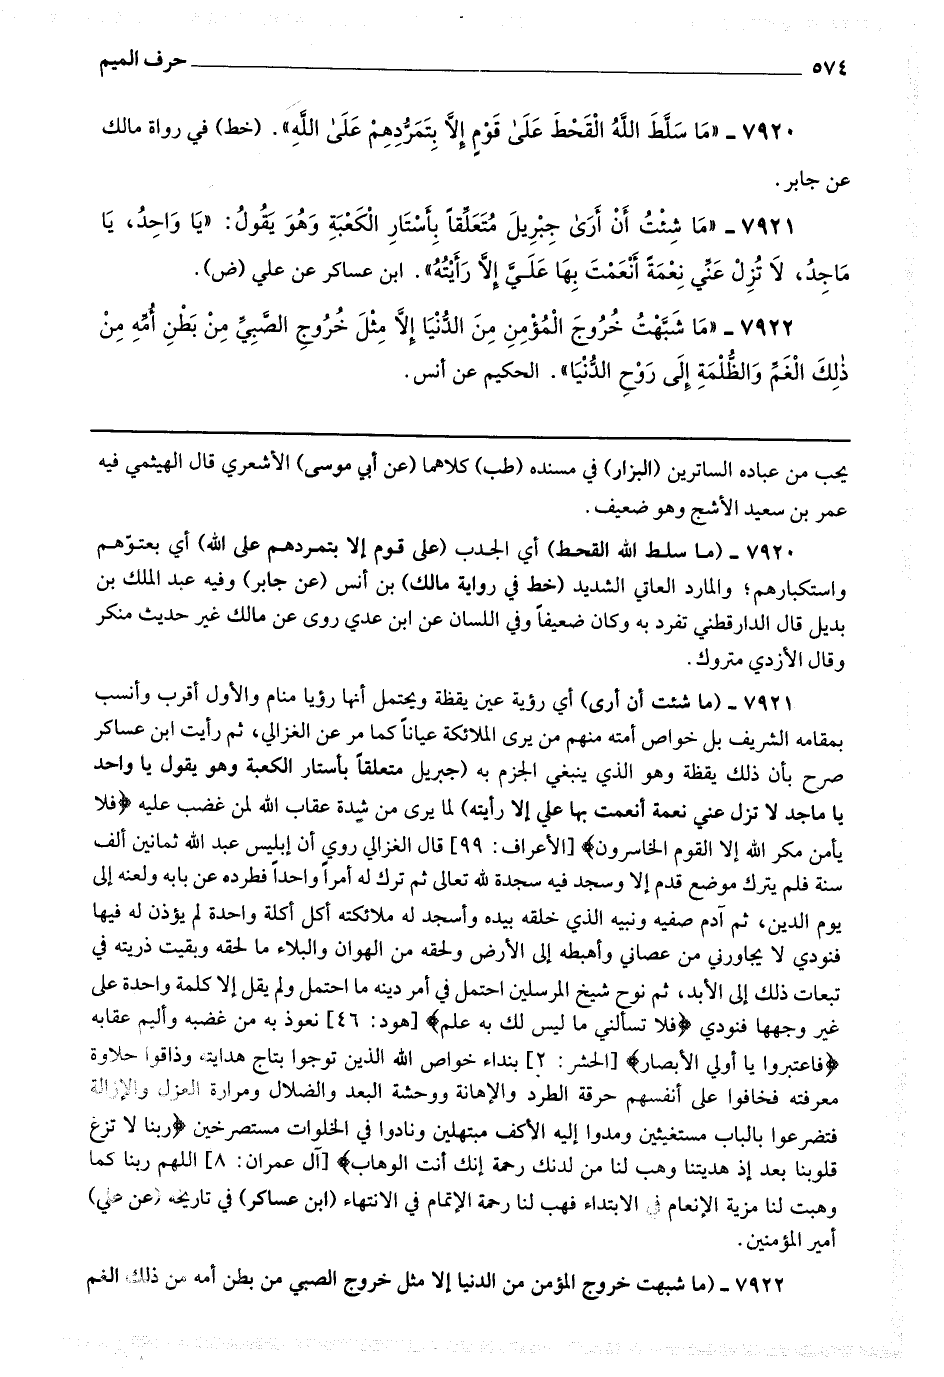 ٥٧٤ حرف الميم
٧٩٢٠ ـ «مَا سَلَّطَ اللَّهُ الْقَحْطَ عَلَىٰ قَوْمٍ إِلاَّ بِتَمَرُّدِهِمْ عَلَىٰ اللَّهِ». (خط) في رواة مالك
عن جابر.
٧٩٢١ ـ «مَا شِئْتُ أَنْ أَرَىٰ جِبْرِيلَ مُتَعَلِّقاً بِأَسْتَارِ الْكَعْبَةِ وَهُوَ يَقُولُ: «يَا وَاحِدُ، يَا
مَاجِدُ، لاَ تُزِلْ عَنِّي نِعْمَةً أَنْعَمْتَ بِهَا عَلَيَّ إِلاَّ رَأَيْتُهُ». ابن عساكر عن علي (ض).
٧٩٢٢ ـ «مَا شَبَّهْتُ خُرُوجَ الْمُؤْمِنِ مِنَ الدُّنْيَا إِلاَّ مِثْلَ خُرُوجِ الصَّبِيِّ مِنْ بَطْنِ أُمِّهِ مِنْ
ذٰلِكَ الْغَمِّ وَالظُّلْمَةِ إِلَى رَوْحِ الدُّنْيَا». الحكيم عن أنس.
يحب من عباده الساترين (البزار) في مسنده (طب) كلاهما (عن أبي موسى) الأشعري قال الهيثمي فيه
عمر بن سعيد الأشج وهو ضعيف.
٧٩٢٠ ـ (ما سلط الله القحط) أي الجدب (على قوم إلا بتمردهم على الله) أي بعتوّهم
واستكبارهم؛ والمارد العاتي الشديد (خط في رواية مالك) بن أنس (عن جابر) وفيه عبد الملك بن
بديل قال الدارقطني تفرد به وكان ضعيفاً وفي اللسان عن ابن عدي روى عن مالك غير حديث منكر
وقال الأزدي متروك.
٧٩٢١ ـ (ما شئت أن أرى) أي رؤية عين يقظة ويحتمل أنها رؤيا منام والأول أقرب وأنسب
بمقامه الشريف بل خواص أمته منهم من يرى الملائكة عياناً كما مر عن الغزالي، ثم رأيت ابن عساكر
صرح بأن ذلك يقظة وهو الذي ينبغي الجزم به (جبريل متعلقاً بأستار الكعبة وهو يقول يا واحد
يا ماجد لا تزل عني نعمة أنعمت بها علي إلا رأيته) لما يرى من شدة عقاب الله لمن غضب عليه ﴿فلا
يأمن مكر الله إلا القوم الخاسرون﴾ [الأعراف: ٩٩] قال الغزالي روي أن إبليس عبد الله ثمانين ألف
سنة فلم يترك موضع قدم إلا وسجد فيه سجدة لله تعالى ثم ترك له أمراً واحداً فطرده عن بابه ولعنه إلى
يوم الدين، ثم آدم صفيه ونبيه الذي خلقه بيده وأسجد له ملائكته أكل أكلة واحدة لم يؤذن له فيها
فنودي لا يجاورني من عصاني وأهبطه إلى الأرض ولحقه من الهوان والبلاء ما لحقه وبقيت ذريته في
تبعات ذلك إلى الأبد، ثم نوح شيخ المرسلين احتمل في أمر دينه ما احتمل ولم يقل إلا كلمة واحدة على
غير وجهها فنودي ﴿فلا تسألني ما ليس لك به علم﴾ [هود: ٤٦] نعوذ به من غضبه وأليم عقابه
﴿فاعتبروا يا أولي الأبصار﴾ [الحشر: ٢] بنداء خواص الله الذين توجوا بتاج هدايته وذاقوا حلاوة
معرفته فخافوا على أنفسهم حرقة الطرد والإهانة ووحشة البعد والضلال ومرارة العزل والإزالة
فتضرعوا بالباب مستغيثين ومدوا إليه الأكف مبتهلين ونادوا في الخلوات مستصرخين ﴿ربنا لا تزغ
قلوبنا بعد إذ هديتنا وهب لنا من لدنك رحمة إنك أنت الوهاب﴾ [آل عمران: ٨] اللهم ربنا كما
وهبت لنا مزية الإنعام في الابتداء فهب لنا رحمة الإتمام في الانتهاء (ابن عساكر) في تاريخه (عن علي)
أمير المؤمنين.
٧٩٢٢ ـ (ما شبهت خروج المؤمن من الدنيا إلا مثل خروج الصبي من بطن أمه من ذلك الغم